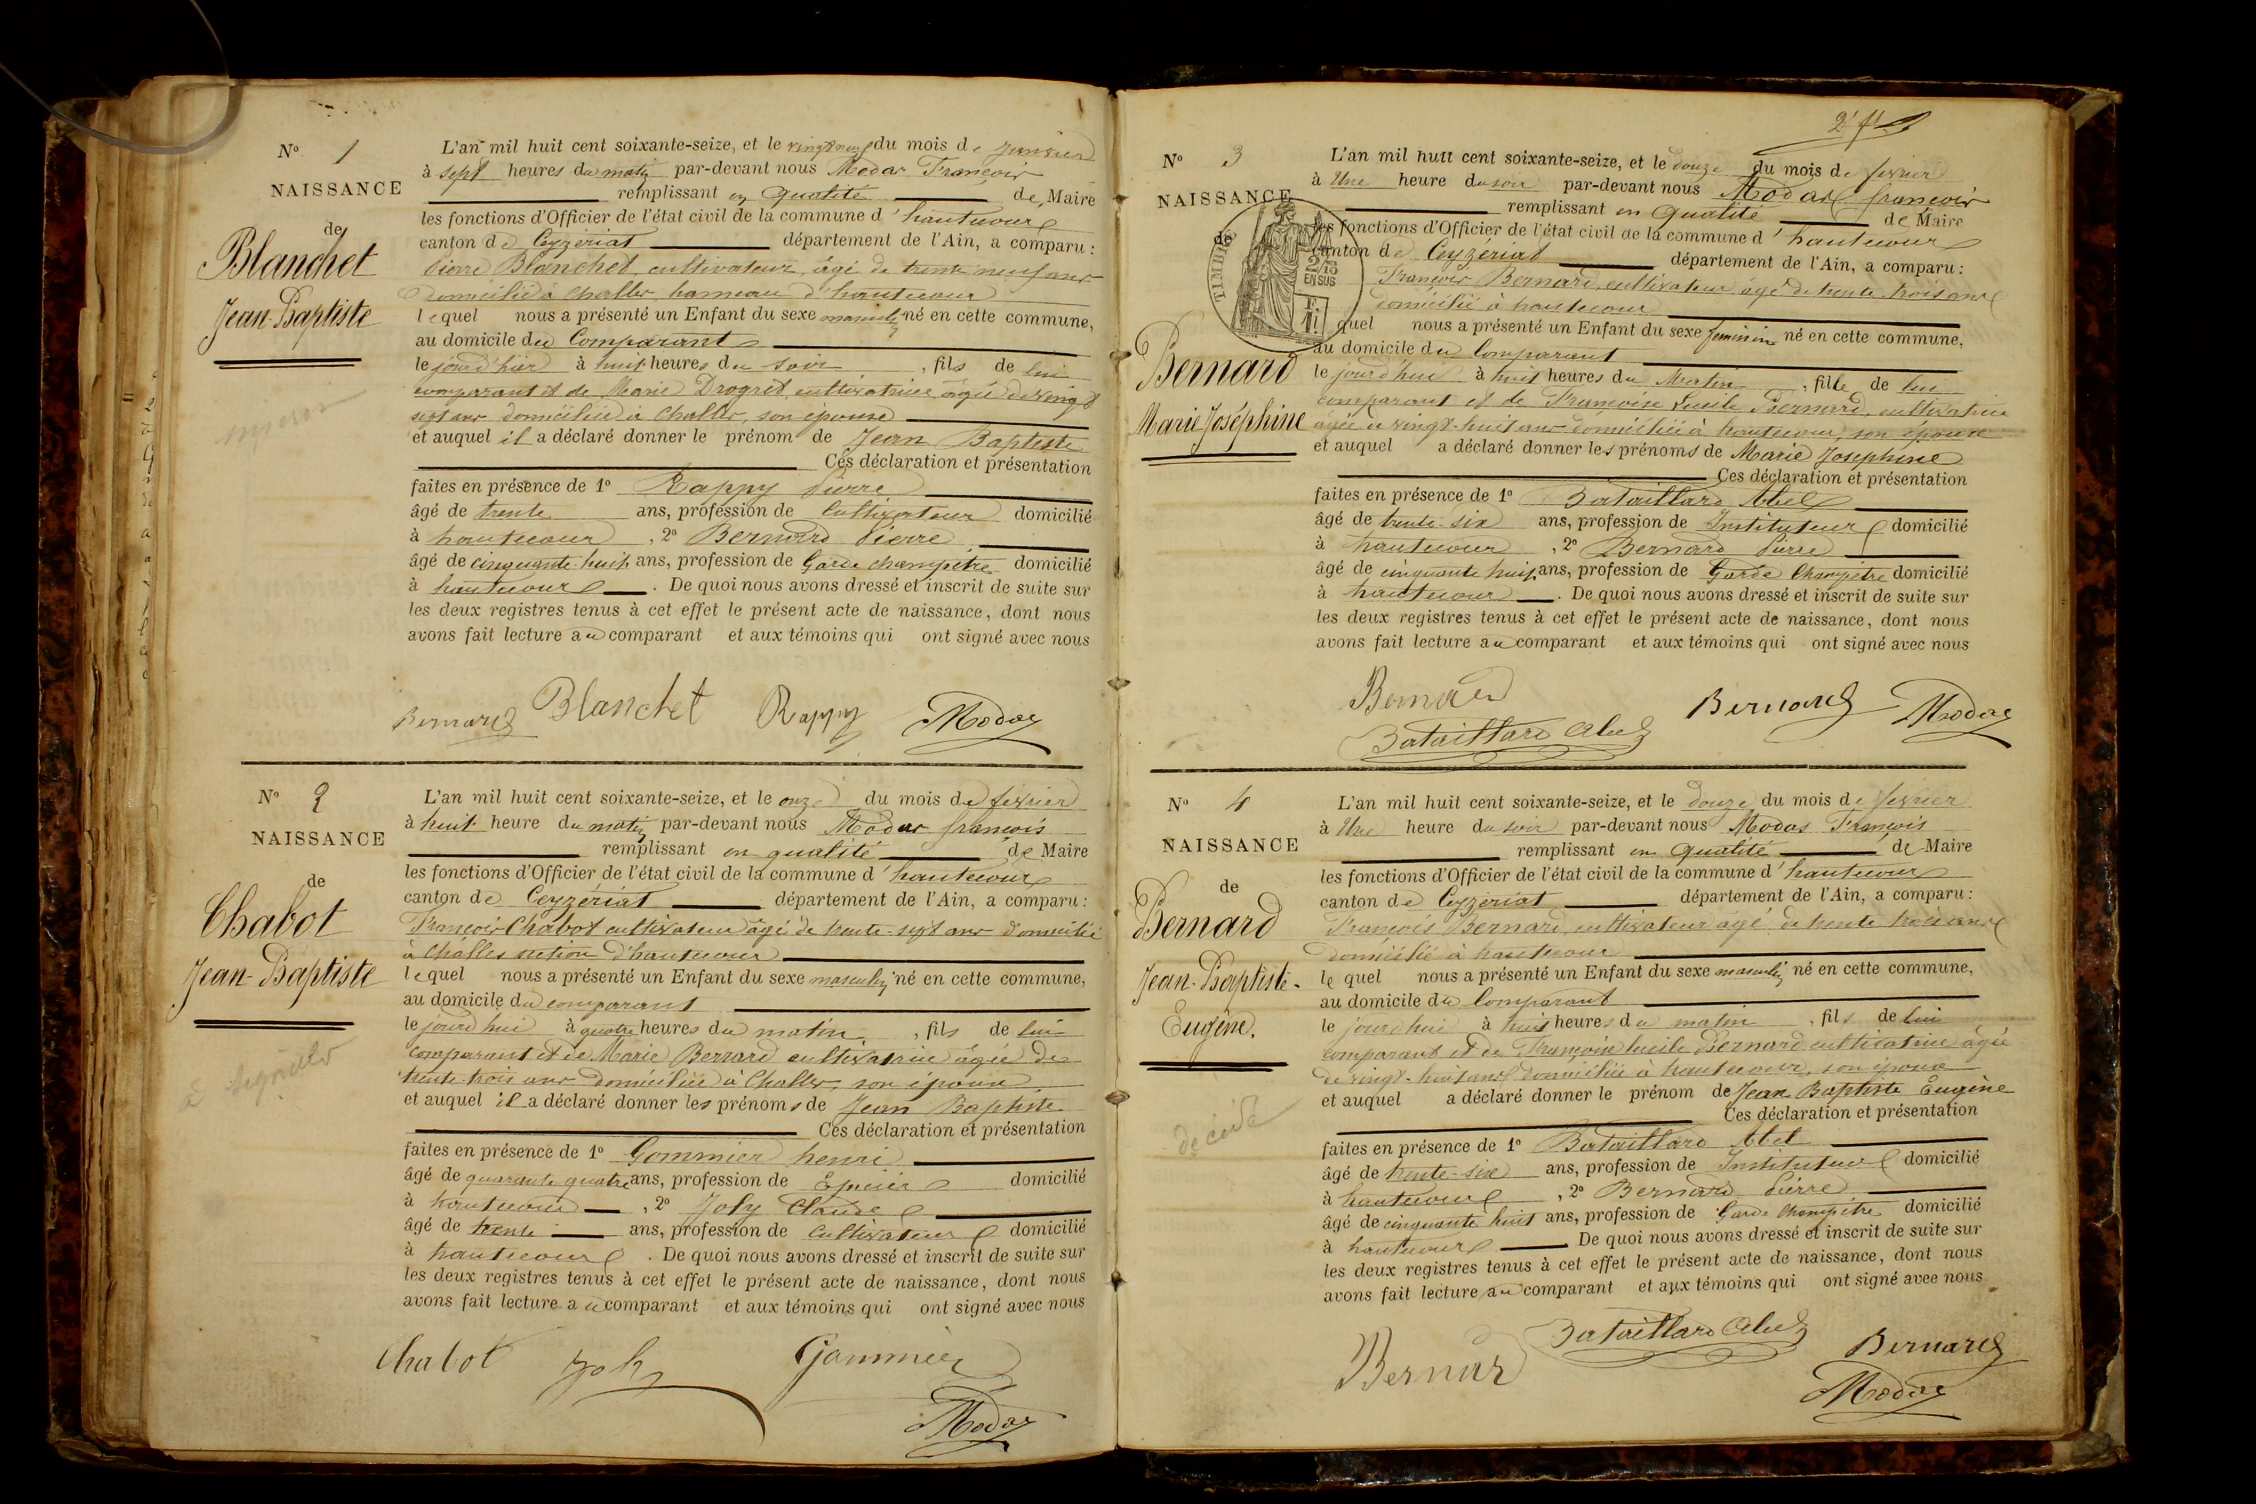 N° 1
NAISSANCE
de
Blanchet
Jean-Baptiste
L'an mil huit cent soixante-seize, et le vingt neuf du mois de janvier
à sept heures du matin par-devant nous Modas François
remplissant en qualité de Maire
les fonctions d'Officier de l'état civil de la commune d'hautecour
canton de Ceyzériat département de l'Ain, a comparu :
Pierre Blanchet, cultivateur, âgé de trente neuf ans
domicilié à Challes, hameau d'hautecour
lequel nous a présenté un Enfant du sexe masculin né en cette commune,
au domicile du Comparant
le jour d'hier à huit heures du soir, fils de lui
comparant et de Marie Drogret, cultivatrice âgée de vingt
sept ans domiciliée à Challes, son épouse
et auquel il a déclaré donner le prénom de Jean Baptiste
Ces déclaration et présentation
faites en présence de 1° Rappy Pierre
âgé de trente ans, profession de Cultivateur domicilié
à hautecour, 2° Bernard Pierre
âgé de cinquante-huit ans, profession de Garde champêtre domicilié
à hautecour. De quoi nous avons dressé et inscrit de suite sur
les deux registres tenus à cet effet le présent acte de naissance, dont nous
avons fait lecture au comparant et aux témoins qui ont signé avec nous
Bernard Blanchet Rappy Modas
N° 2
NAISSANCE
de
Chabot
Jean-Baptiste
à signaler
L'an mil huit cent soixante-seize, et le onze du mois de février
à huit heure du matin par-devant nous Modas françois
remplissant en qualité de Maire
les fonctions d'Officier de l'état civil de la commune d'hautecour
canton de Ceyzériat département de l'Ain, a comparu :
François Chabot cultivateur âgé de trente-sept ans domicilié
à Challes section d'hautecour
lequel nous a présenté un Enfant du sexe masculin né en cette commune,
au domicile du comparant
le jourd'hui à quatre heures du matin, fils de lui
comparant et de Marie Bernard cultivatrice âgée de
trente-trois ans domiciliée à Challes, son épouse
et auquel il a déclaré donner les prénoms de Jean Baptiste
Ces déclaration et présentation
faites en présence de 1° Gommier henri
âgé de quarante quatre ans, profession de Epicier domicilié
à hautecour, 2° Joly Claude
âgé de trente ans, profession de cultivateur domicilié
à hautecour. De quoi nous avons dressé et inscrit de suite sur
les deux registres tenus à cet effet le présent acte de naissance, dont nous
avons fait lecture au comparant et aux témoins qui ont signé avec nous
Chabot Joly Gommier
Modas
2e ft
N° 3
NAISSANCE
de
TIMBRE
2/10
EN SUS
Bernard
Marie Joséphine
L'an mil huit cent soixante-seize, et le douze du mois de février
à Une heure du soir par-devant nous Modas françois
remplissant en qualité de Maire
les fonctions d'Officier de l'état civil de la commune d'hautecour
canton de Ceyzériat département de l'Ain, a comparu :
François Bernard, cultivateur âgé de trente trois ans
domicilié à hautecour
quel nous a présenté un Enfant du sexe féminin né en cette commune,
au domicile du Comparant
le jourd'hui à huit heures du Matin, fille de lui
comparant et de Françoise Lucile Bernard, cultivatrice
âgée de vingt-huit ans domiciliée à hautecour, son épouse
et auquel a déclaré donner les prénoms de Marie Joséphine
Ces déclaration et présentation
faites en présence de 1° Bataillard Abel
âgé de trente-six ans, profession de Instituteur domicilié
à hautecour, 2° Bernard Pierre
âgé de cinquante huit ans, profession de Garde Champêtre domicilié
à hautecour. De quoi nous avons dressé et inscrit de suite sur
les deux registres tenus à cet effet le présent acte de naissance, dont nous
avons fait lecture au comparant et aux témoins qui ont signé avec nous
Bernard Bernard Modas
Bataillard Abel
N° 4
NAISSANCE
de
Bernard
Jean-Baptiste-
Eugène.
décédé
L'an mil huit cent soixante-seize, et le douze du mois de février
à Une heure du soir par-devant nous Modas François
remplissant en qualité de Maire
les fonctions d'Officier de l'état civil de la commune d'hautecour
canton de Ceyzériat département de l'Ain, a comparu :
François Bernard, cultivateur âgé de trente trois ans
domicilié à hautecour
le quel nous a présenté un Enfant du sexe masculin né en cette commune,
au domicile du Comparant
le jourd'hui à huit heures du matin, fils de lui
comparant et de Françoise lucile Bernard cultivatrice âgée
de vingt-huit ans domiciliée à hautecour, son épouse
et auquel a déclaré donner le prénom de Jean Baptiste Eugène
Ces déclaration et présentation
faites en présence de 1° Bataillard Abel
âgé de trente-six ans, profession de Instituteur domicilié
à hautecour, 2° Bernard Pierre
âgé de cinquante huit ans, profession de Garde Champêtre domicilié
à hautecour De quoi nous avons dressé et inscrit de suite sur
les deux registres tenus à cet effet le présent acte de naissance, dont nous
avons fait lecture au comparant et aux témoins qui ont signé avec nous
Bernard Bataillard Abel Bernard
Modas